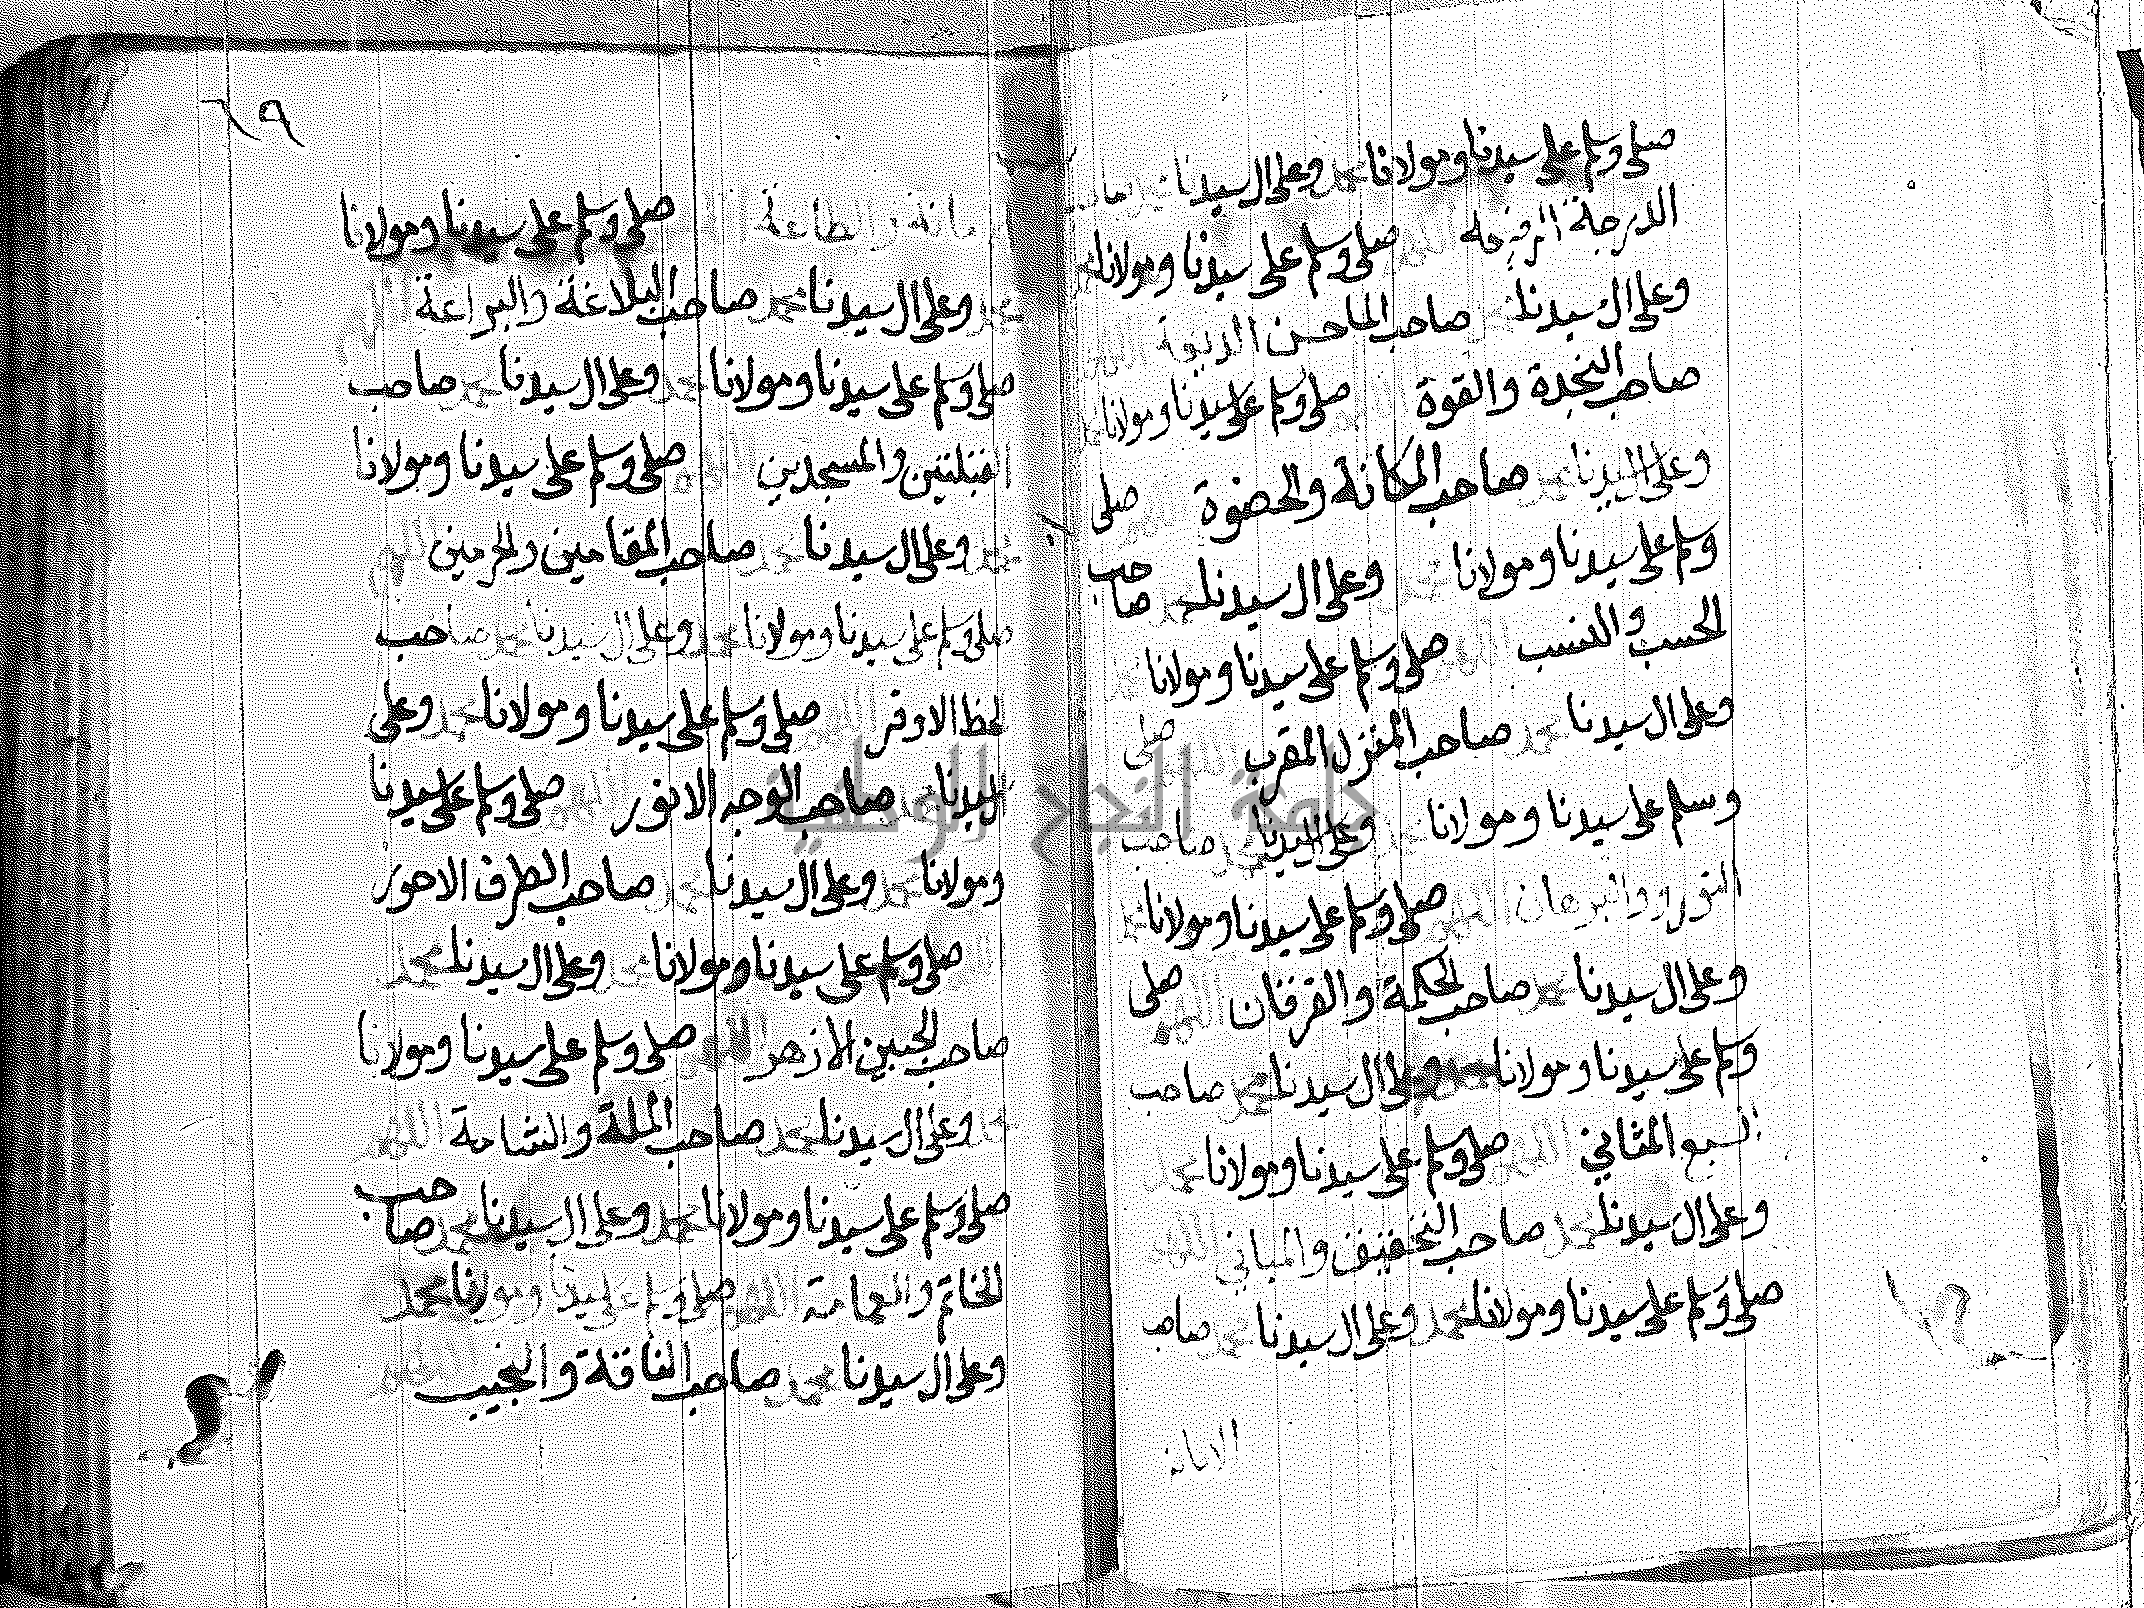 صلى وسلم على سيدنا ومولانا محمد وعلى ال سيدنا محمد صاحب
الدرجة الرفيعة صلى وسلم على سيدنا ومولانا محمد
وعلى ال سيدنا محمد صاحب المحاسن البديعة
صاحب النجدة والقوة صلى وسلم على سيدنا ومولانا محمد
وعلى ال سيدنا محمد صاحب المكانة والحضوة صلى
وسلم على سيدنا ومولانا محمد وعلى ال سيدنا محمد صاحب
الحسب والنسب اللهم صلى وسلم على سيدنا ومولانا
وعلى ال سيدنا محمد صاحب المنزل المقرب صلى
وسلم على سيدنا ومولانا محمد وعلى ال سيدنا محمد صاحب
النور والبرهان اللهم صلى وسلم على سيدنا ومولانا محمد
وعلى ال سيدنا محمد صاحب الحكمة والفرقان اللهم صلى
وسلم على سيدنا ومولانا محمد وعلى ال سيدنا محمد صاحب
السبع المثاني اللهم صلى وسلم على سيدنا ومولانا محمد
وعلى ال سيدنا محمد صاحب التخفيف والمباني اللهم
صلى وسلم على سيدنا ومولانا محمد وعلى ال سيدنا محمد صاحب
الامانة
٦٩
مانة والطاعة صلى وسلم على سيدنا ومولانا
محمد وعلى ال سيدنا محمد صاحب البلاغة والبراعة
صلى وسلم على سيدنا ومولانا محمد وعلى ال سيدنا محمد صاحب
القبلتين والمسجدين اللهم صلى وسلم على سيدنا ومولانا
محمد وعلى ال سيدنا محمد صاحب المقامين والحرمين اللهم
صلى وسلم على سيدنا ومولانا محمد وعلى ال سيدنا محمد صاحب
لحظ الاوفر اللهم صلى وسلم على سيدنا ومولانا محمد وعلى
ال سيدنا محمد صاحب الوجه الانور اللهم صلى وسلم على سيدنا
ومولانا محمد وعلى ال سيدنا محمد صاحب الطرف الاحور
صلى وسلم على سيدنا ومولانا محمد وعلى ال سيدنا محمد
صاحب الجبين الازهر اللهم صلى وسلم على سيدنا ومولانا
محمد وعلى ال سيدنا محمد صاحب الملة والشامة اللهم
صلى وسلم على سيدنا ومولانا محمد وعلى ال سيدنا محمد صاحب
الخاتم والعمامة اللهم صلى وسلم على سيدنا ومولانا محمد
وعلى ال سيدنا محمد صاحب الناقة والنجيب
جامعة النجاح الوطنية